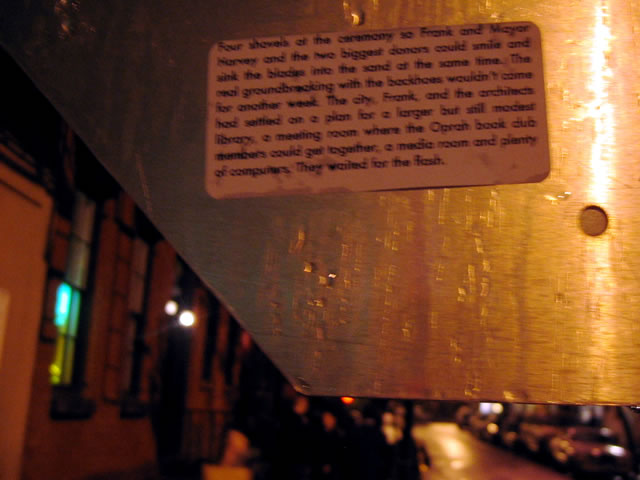 Four shovels at the ceremony so Frank and Mayor
Harvey and the two biggest donors could smile and
sink the blades into the sand at the same time. The
real groundbreaking with the backhoes wouldn't come
for another week. The city, Frank, and the architects
had settled on a plan for a larger but still modest
library, a meeting room where the Oprah book club
members could get together, a media room and plenty
of computers. They waited for the flash.